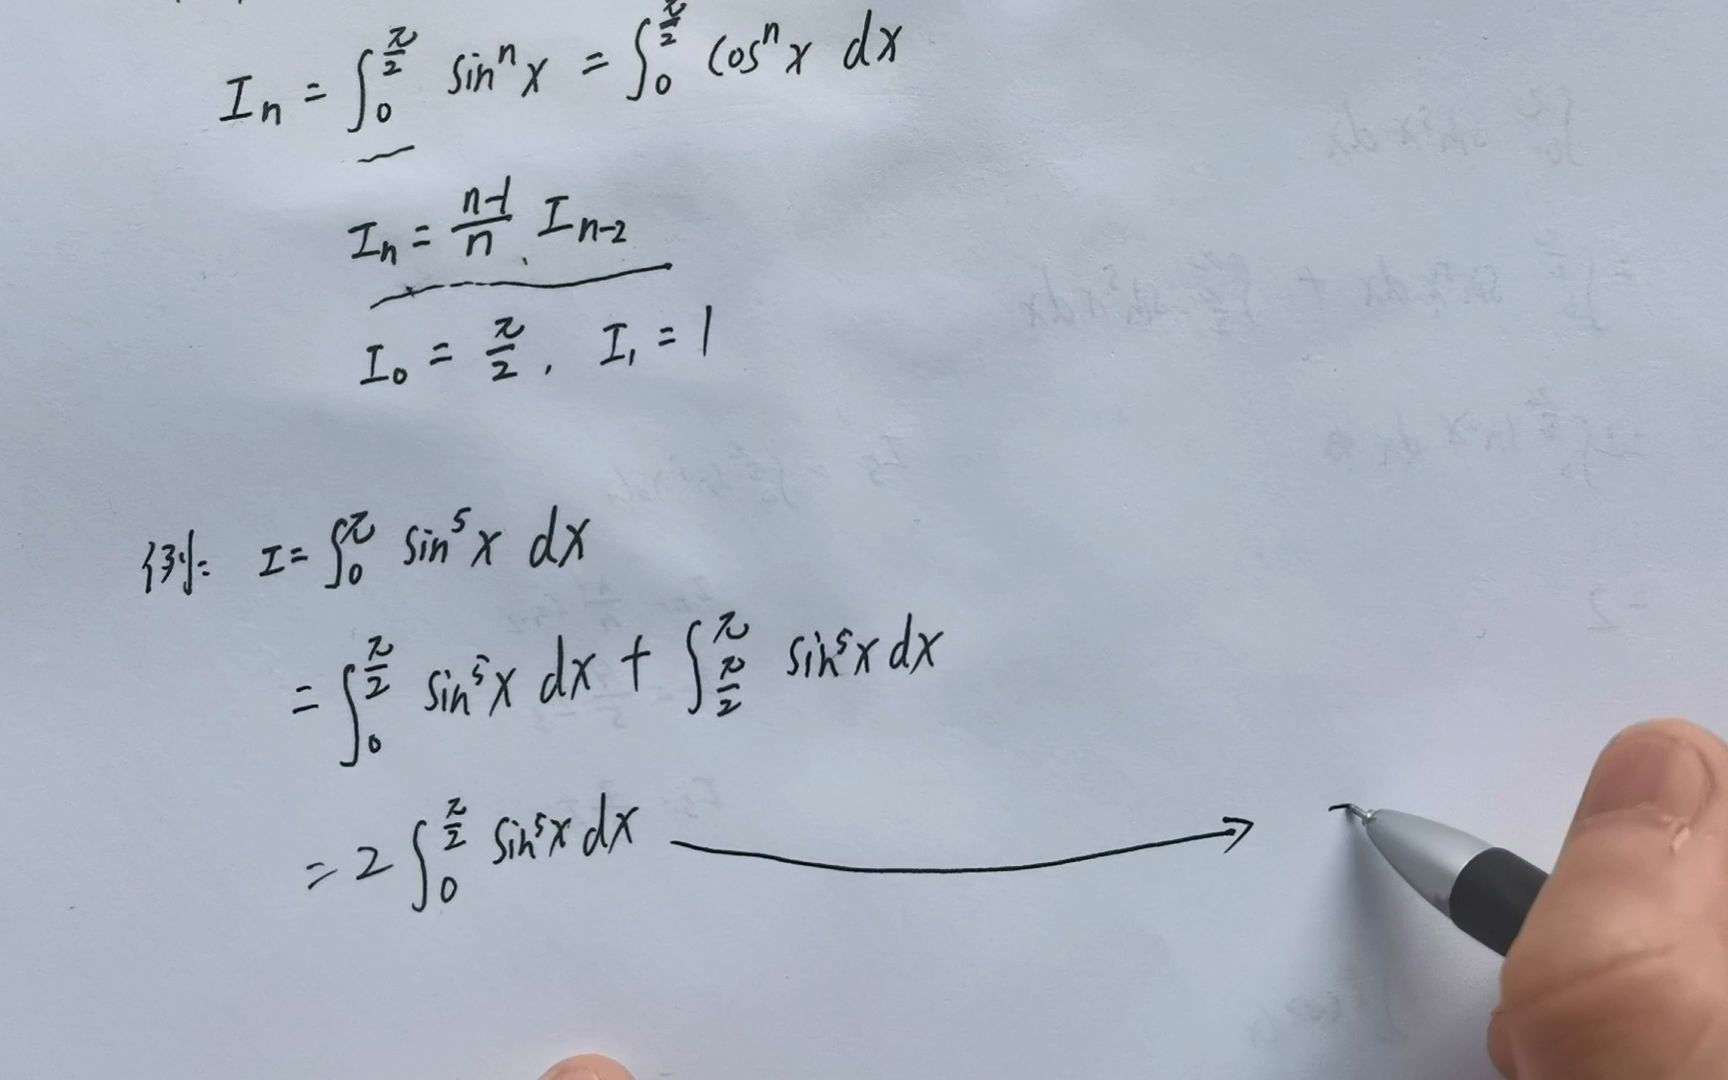 Iₙ = ∫₀^(π/2) sinⁿx = ∫₀^(π/2) cosⁿx dx
Iₙ = (n-1)/n Iₙ₋₂
I₀ = π/2, I₁ = 1
例: I = ∫₀^π sin⁵x dx
= ∫₀^(π/2) sin⁵x dx + ∫_(π/2)^π sin⁵x dx
= 2 ∫₀^(π/2) sin⁵x dx